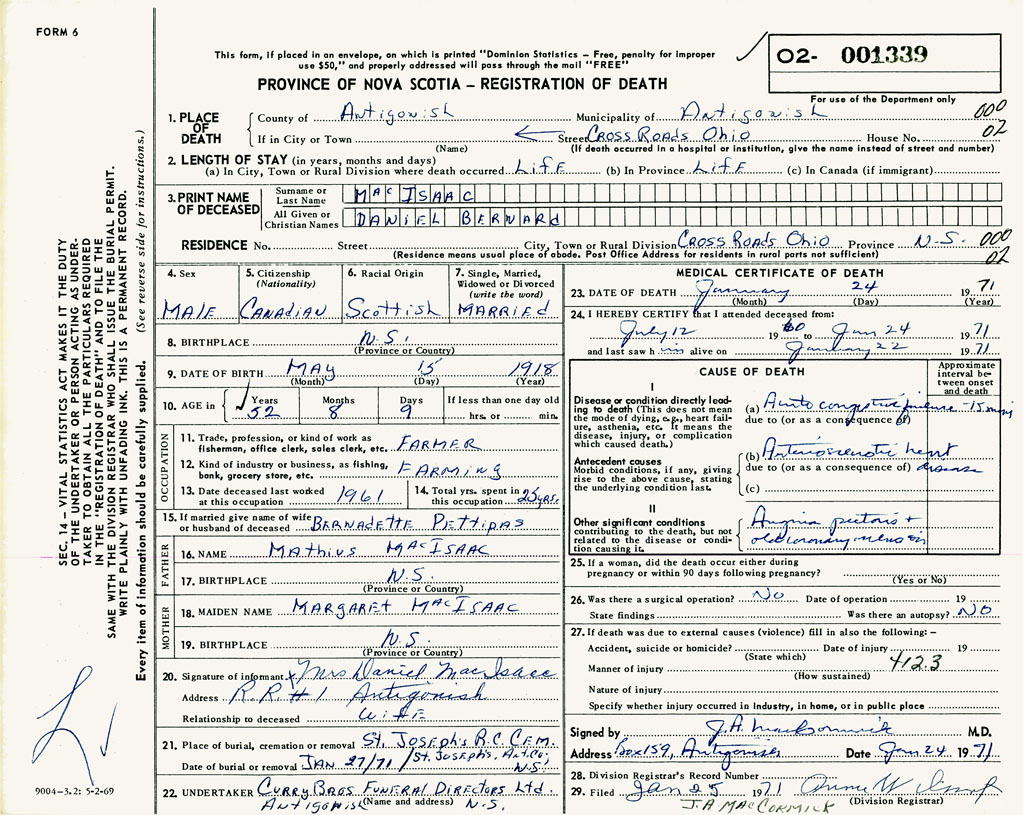 FORM 6
This form, if placed in an envelope, on which is printed "Dominion Statistics – Free, penalty for improper
use $50," and properly addressed will pass through the mail "FREE"
02- 001339
PROVINCE OF NOVA SCOTIA – REGISTRATION OF DEATH
For use of the Department only
1. PLACE OF DEATH County of Antigonish Municipality of Antigonish 000
If in City or Town (Name) Street Cross Roads Ohio House No. 02
(If death occurred in a hospital or institution, give the name instead of street and number)
2. LENGTH OF STAY (in years, months and days)
(a) In City, Town or Rural Division where death occurred Life (b) In Province Life (c) In Canada (if immigrant)
3. PRINT NAME OF DECEASED Surname or Last Name MacIsaac
All Given or Christian Names Daniel Bernard
RESIDENCE No. Street City, Town or Rural Division Cross Roads Ohio Province N.S. 000
(Residence means usual place of abode. Post Office Address for residents in rural parts not sufficient) 02
4. Sex Male
5. Citizenship (Nationality) Canadian
6. Racial Origin Scottish
7. Single, Married, Widowed or Divorced (write the word) Married
8. BIRTHPLACE N.S.
(Province or Country)
9. DATE OF BIRTH May 15 1918
(Month) (Day) (Year)
10. AGE in Years 52 Months 8 Days 9 If less than one day old hrs. or min.
OCCUPATION
11. Trade, profession, or kind of work as fisherman, office clerk, sales clerk, etc. Farmer
12. Kind of industry or business, as fishing, bank, grocery store, etc. Farming
13. Date deceased last worked at this occupation 1961
14. Total yrs. spent in this occupation 25 yrs.
15. If married give name of wife or husband of deceased Bernadette Pettipas
FATHER
16. NAME Mathius MacIsaac
17. BIRTHPLACE N.S.
(Province or Country)
MOTHER
18. MAIDEN NAME Margaret MacIsaac
19. BIRTHPLACE N.S.
(Province or Country)
20. Signature of informant x Mrs Daniel MacIsaac
Address R.R.#1 Antigonish
Relationship to deceased Wife
21. Place of burial, cremation or removal St. Joseph's R.C. Cem.
Date of burial or removal Jan 27/71 / St. Joseph's, Ant. Co. N.S.
22. UNDERTAKER Curry Bros Funeral Directors Ltd.
Antigonish (Name and address) N.S.
MEDICAL CERTIFICATE OF DEATH
23. DATE OF DEATH January 24 1971
(Month) (Day) (Year)
24. I HEREBY CERTIFY that I attended deceased from:
July 12 1960 to Jan 24 1971
and last saw him alive on January 22 1971
CAUSE OF DEATH
Approximate interval between onset and death
I
Disease or condition directly leading to death (This does not mean the mode of dying, e.g., heart failure, asthenia, etc. It means the disease, injury, or complication which caused death.)
(a) Acute congestive failure - 15 mins
due to (or as a consequence of)
Antecedent causes
Morbid conditions, if any, giving rise to the above cause, stating the underlying condition last.
(b) Arteriosclerotic heart
due to (or as a consequence of) disease
(c)
II
Other significant conditions contributing to the death, but not related to the disease or condition causing it.
Angina pectoris +
old coronary
25. If a woman, did the death occur either during pregnancy or within 90 days following pregnancy?
(Yes or No)
26. Was there a surgical operation? No Date of operation 19
State findings Was there an autopsy? No
27. If death was due to external causes (violence) fill in also the following: –
Accident, suicide or homicide? Date of injury 19
(State which) 412.3
Manner of injury
(How sustained)
Nature of injury
Specify whether injury occurred in industry, in home, or in public place
Signed by J.A. MacCormick M.D.
Address Box 159, Antigonish Date Jan 24 1971
28. Division Registrar's Record Number
29. Filed Jan 25 1971
J.A MacCormick (Division Registrar)
SEC. 14 – VITAL STATISTICS ACT MAKES IT THE DUTY
OF THE UNDERTAKER OR PERSON ACTING AS UNDER-
TAKER TO OBTAIN ALL THE PARTICULARS REQUIRED
IN THE "REGISTRATION OF DEATH" AND TO FILE THE
SAME WITH THE DIVISION REGISTRAR WHO SHALL ISSUE THE BURIAL PERMIT.
WRITE PLAINLY WITH UNFADING INK. THIS IS A PERMANENT RECORD.
Every item of information should be carefully supplied. (See reverse side for instructions.)
9004-3.2: 5-2-69